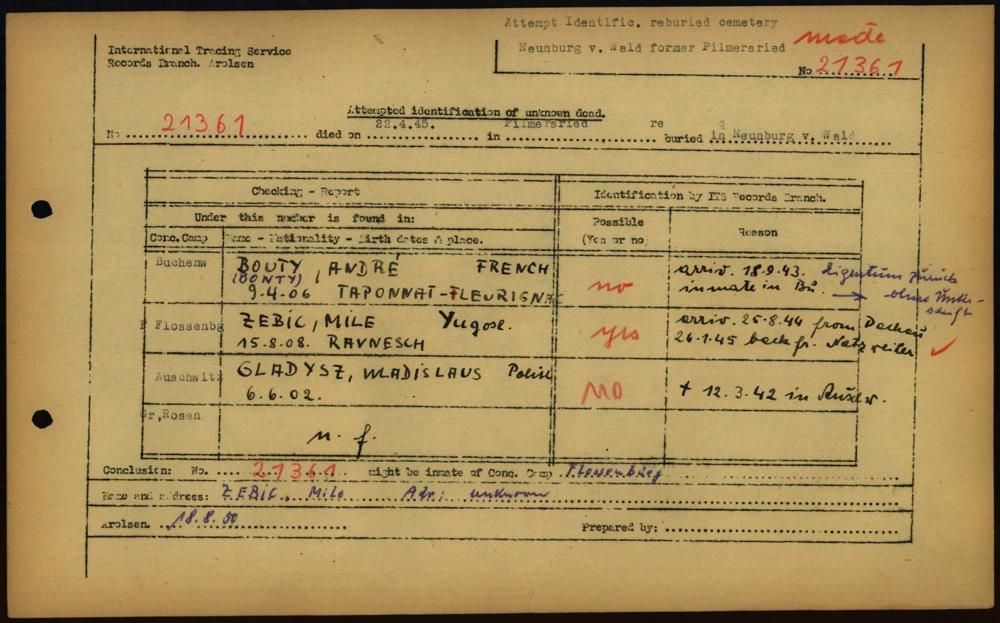 Attempt Identific. reburied cemetery
Neunburg v. Wald former Pilmersried made
No 21361
International Tracing Service
Records Branch. Arolsen
Attempted identification of unknown dead.
No 21361 died on 22.4.45. in Pilmersried re buried in Neunburg v. Wald
Checking - Report
Identification by ITS Records Branch.
Under this number is found in:
Possible (Yes or no)
Reason
Conc. Camp
Name - Nationality - Birth dates & place.
Buchenw BOUTY, ANDRÉ FRENCH
(BONTY)
9-4-06 TAPONNAT-FLEURIGNAC
no
arriv. 18.9.43.
inmate in Bu.
Eigentum zurück
ohne Unter-
schrift
Flossenbg ZEBIC, MILE Yugosl.
15.8.08. RAVNESCH
yes
arriv. 25-8.44 from Dachau
26.1.45 back fr. Natzweiler
Auschwitz GLADYSZ, WLADISLAUS Polish
6.6.02.
NO
+ 12.3.42 in Auschw.
Gr,Rosen
n. f.
Conclusion: No. 21361 might be inmate of Conc. Camp Flossenbürg
Name and address: ZEBIC, Mile Adr: unknown
Arolsen. 18.8.50
Prepared by: